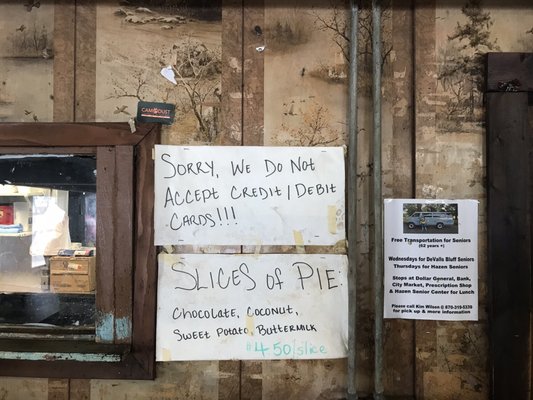 CAM DUST
SORRY, WE DO NOT
ACCEPT CREDIT/DEBIT
CARDS!!!
SLICES OF PIE
CHOCOLATE, COCONUT,
SWEET POTATO, BUTTERMILK
$4.50/slice
Free Transportation for Seniors
(52 years +)
Wednesdays for DeValls Bluff Seniors
Thursdays for Hazen Seniors
Stops at Dollar General, Bank,
City Market, Prescription Shop
& Hazen Senior Center for Lunch
Please call Kim Wilson @ 870-319-5330
for pick up & more information